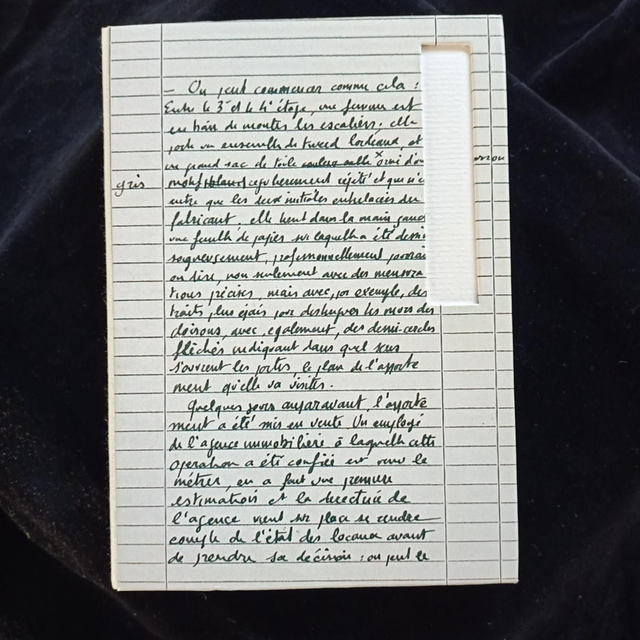 - On peut commencer comme cela :
Entre le 3e et le 4e étage, une femme est
en train de monter les escaliers. elle
porte un ensemble de tweed bordeaux, et
un grand sac de toile orné d'un
gris
motif régulièrement répété et qui n'
entre que les deux initiales entrelacées du
fabricant. elle tient dans la main gauc
une feuille de papier sur laquelle a été dessi
soigneusement, professionnellement pourrai
on dire, non seulement avec des mensura
tions précises, mais avec, par exemple, des
traits plus épais pour distinguer les murs des
cloisons, avec, également, des demi-cercles
fléchés indiquant dans quel sens
s'ouvrent les portes, le plan de l'apparte
ment qu'elle va visiter.
Quelques jours auparavant, l'apparte
ment a été mis en vente. Un employé
de l'agence immobilière à laquelle cette
opération a été confiée est venu le
métrer, en a fait une première
estimation et la directrice de
l'agence vient sur place se rendre
compte de l'état des locaux avant
de prendre sa décision : on peut le